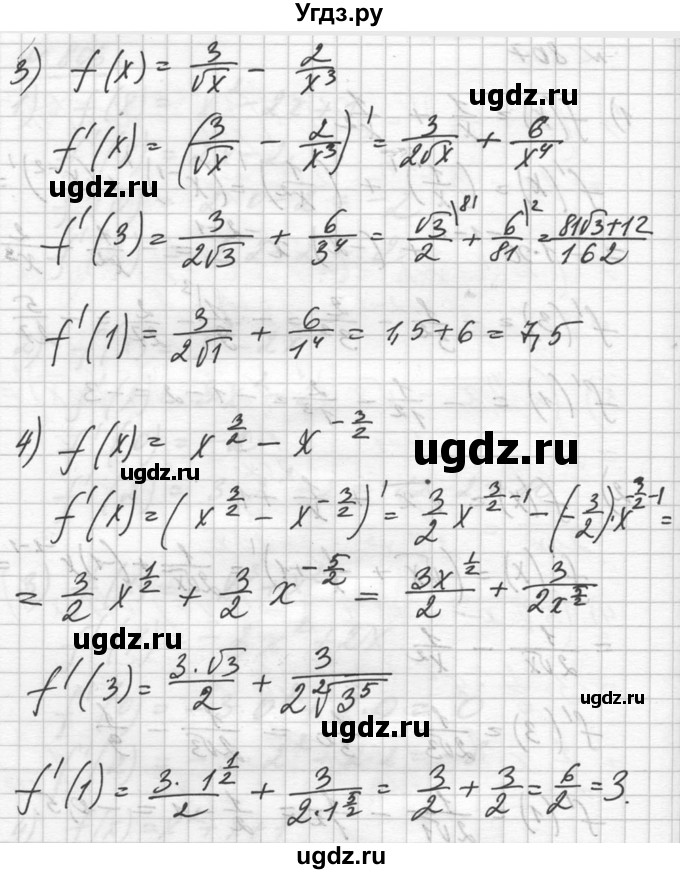 Угдз.ру
3) f(x) = 3/√x − 2/x³
ugdz.ru
f'(x) = (3/√x − 2/x³)' = 3/(2√x) + 6/x⁴
ugdz.ru
f'(3) = 3/(2√3) + 6/3⁴ = √3/2 |⁸¹ + 6/81 |² = (81√3+12)/162
f'(1) = 3/(2√1) + 6/1⁴ = 1,5 + 6 = 7,5
4) f(x) = x^(3/2) − x^(−3/2)
ugdz.ru
ugdz.ru
f'(x) = (x^(3/2) − x^(−3/2))' = 3/2 x^(3/2−1) − (−3/2)·x^(−3/2−1) =
= 3/2 x^(1/2) + 3/2 x^(−5/2) = 3x^(1/2)/2 + 3/(2x^(5/2))
ugdz.ru
f'(3) = 3·√3/2 + 3/(2 ²√3⁵)
ugdz.ru
ugdz.ru
f'(1) = 3·1^(1/2)/2 + 3/(2·1^(5/2)) = 3/2 + 3/2 = 6/2 = 3.
ugdz.ru